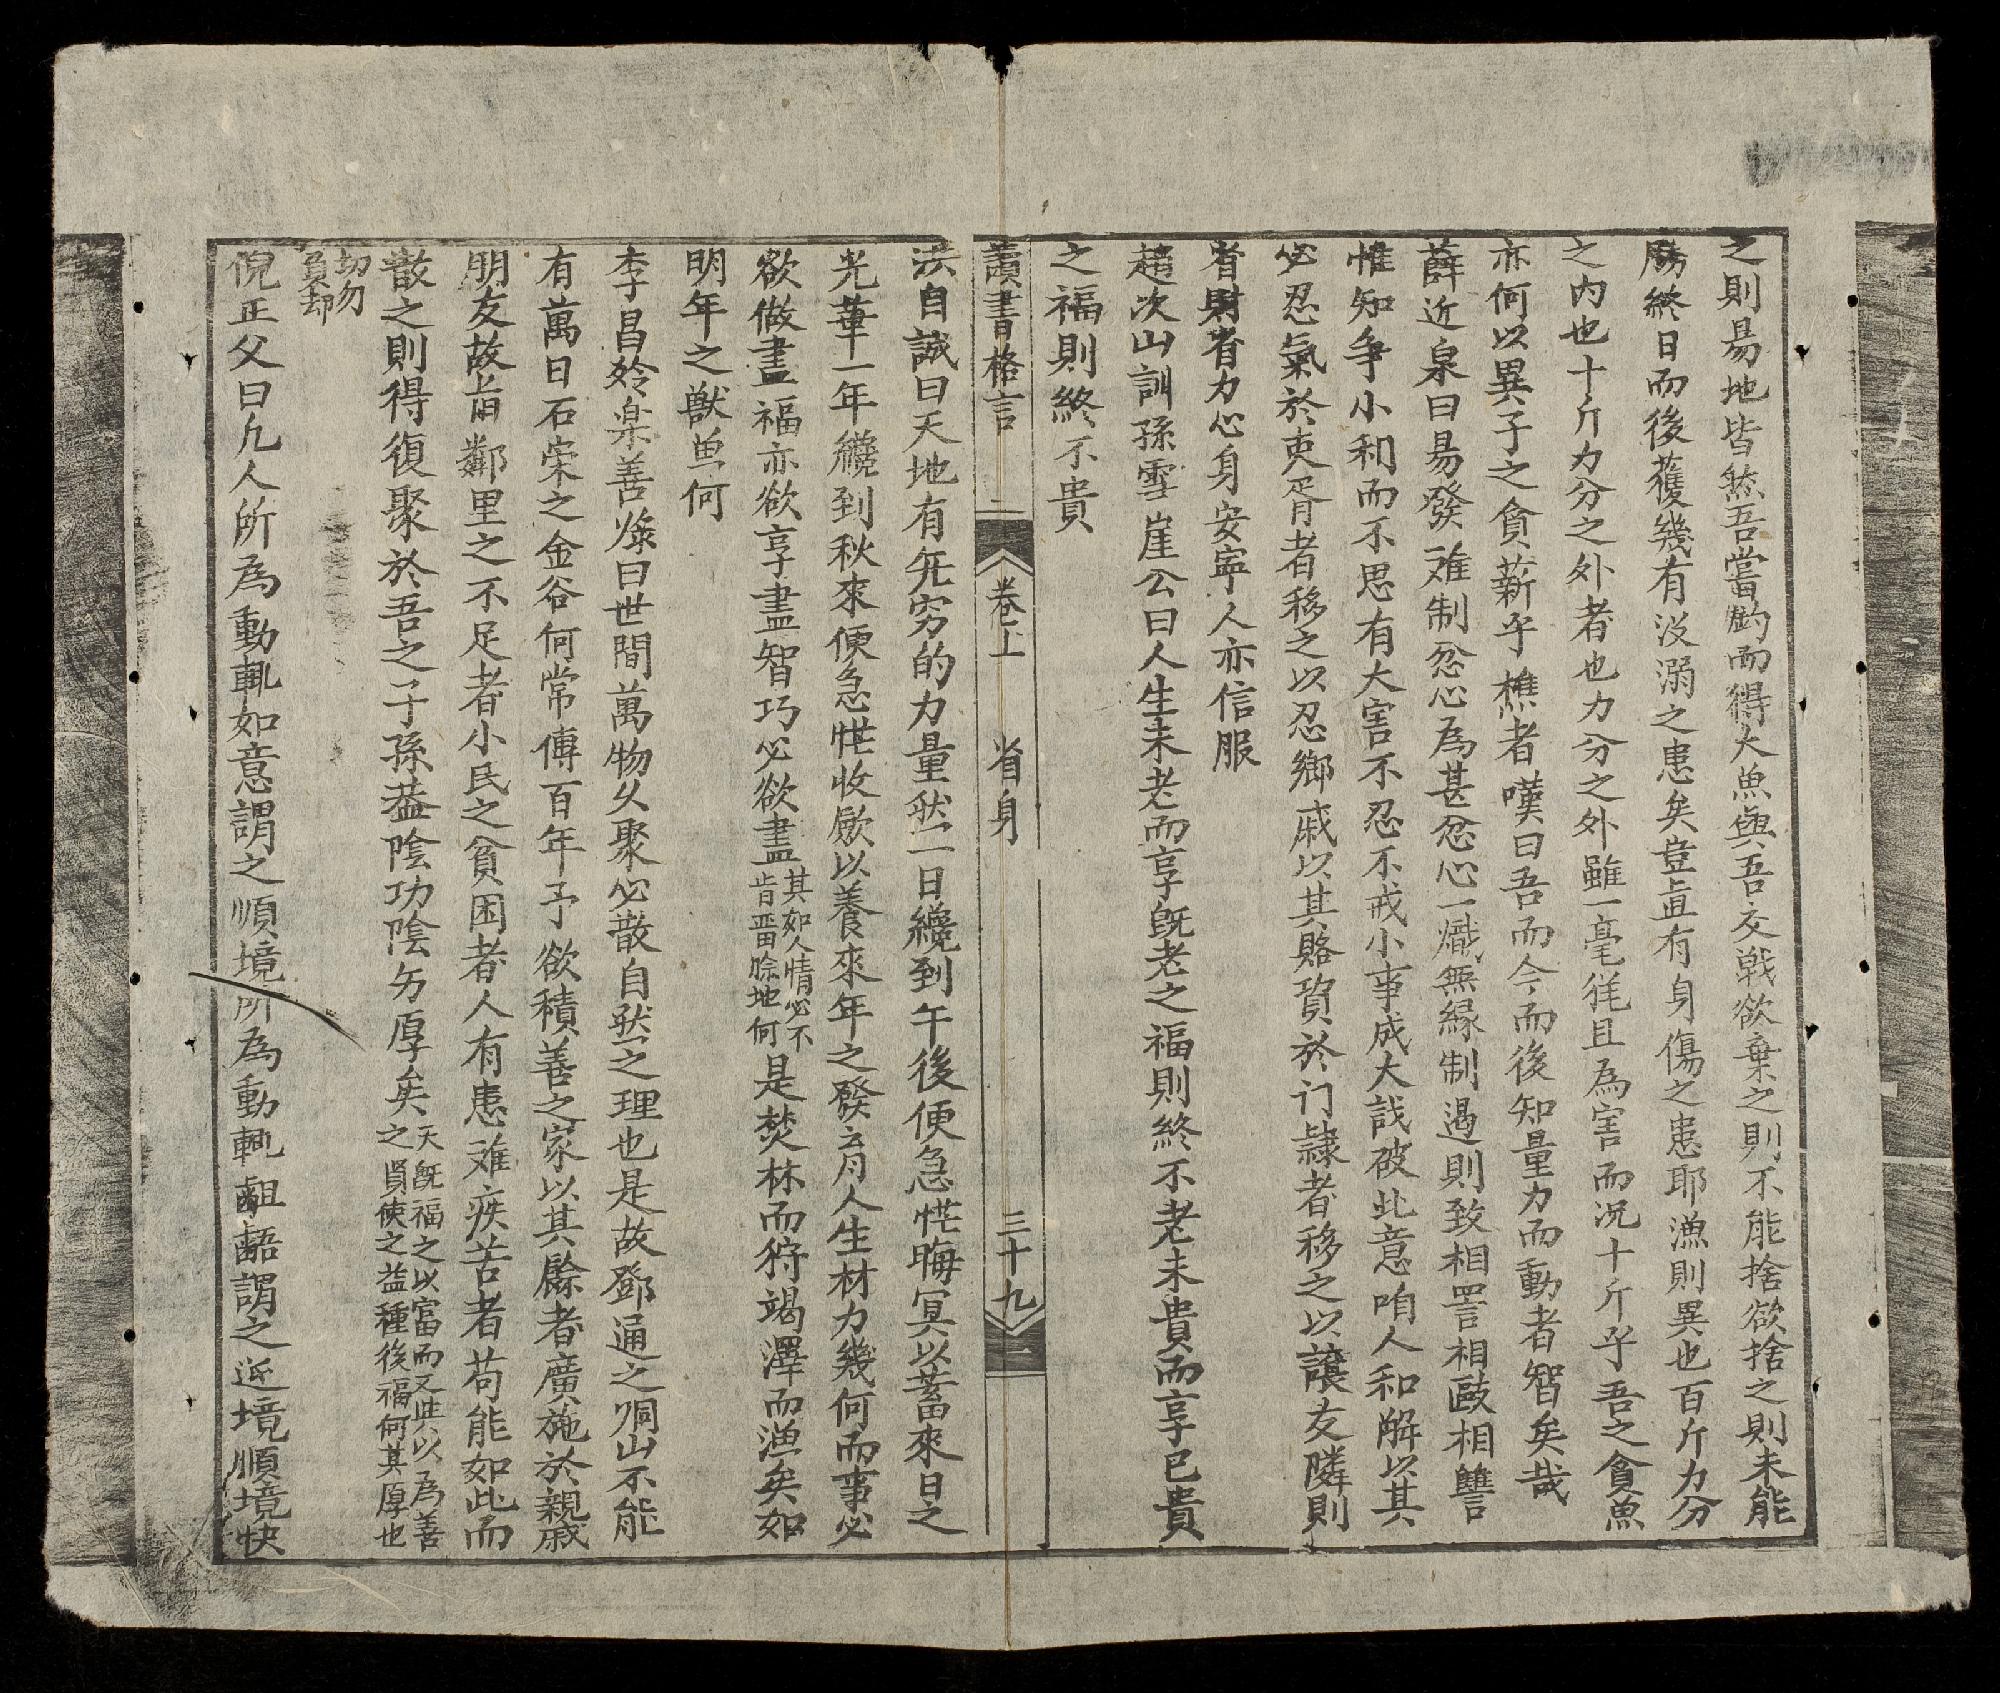 之則易地皆然吾嘗釣而得大魚與吾交戰欲棄之則不能捨欲捨之則未能
勝終日而後獲幾有沒溺之患矣豈直有身傷之患耶漁則異也百斤力分
之內也十斤力分之外者也力分之外雖一毫猶且為害而况十斤乎吾之貪魚
亦何以異子之貪薪乎樵者嘆曰吾而今而後知量力而動者智矣哉
薛近泉曰易發难制忿心為甚忿心一熾無緣制遏則致相詈相歐相讐
惟知争小利而不思有大害不忍不戒小事成大戝破此意咱人和解以其
必忍氣於吏胥者移之以忍鄉戚以其賂貨於门隷者移之以讓友隣則
省財省力心身安寧人亦信服
趙次山訓孫雪崖公曰人生未老而享旣老之福則終不老未貴而享已貴
之福則終不貴
讀書格言 卷上 省身 三十九
洪自誠曰天地有无穷的力量然一日纔到午後便急性晦冥以蓄來日之
光華一年纔到秋來便急性收歛以養來年之發育人生材力幾何而事必
欲做盡福亦欲享盡智巧必欲盡其如人情必不
肯畱餘地何是焚林而狩竭澤而漁矣如
明年之獸魚何
李昌齡楽善錄曰世間萬物久聚必散自然之理也是故鄧通之峒山不能
有萬日石崇之金谷何常傳百年予欲積善之家以其餘者廣施於親戚
朋友故旧鄰里之不足者小民之貧困者人有患难疾苦者苟能如此而
散之則得復聚於吾之子孫葢陰功陰㔟厚矣天旣福之以富而又與以為善
之貲使之益種後福何其厚也
切勿
負却
倪正父曰凢人所為動輒如意謂之順境所為動輒齟齬謂之逆境順境快